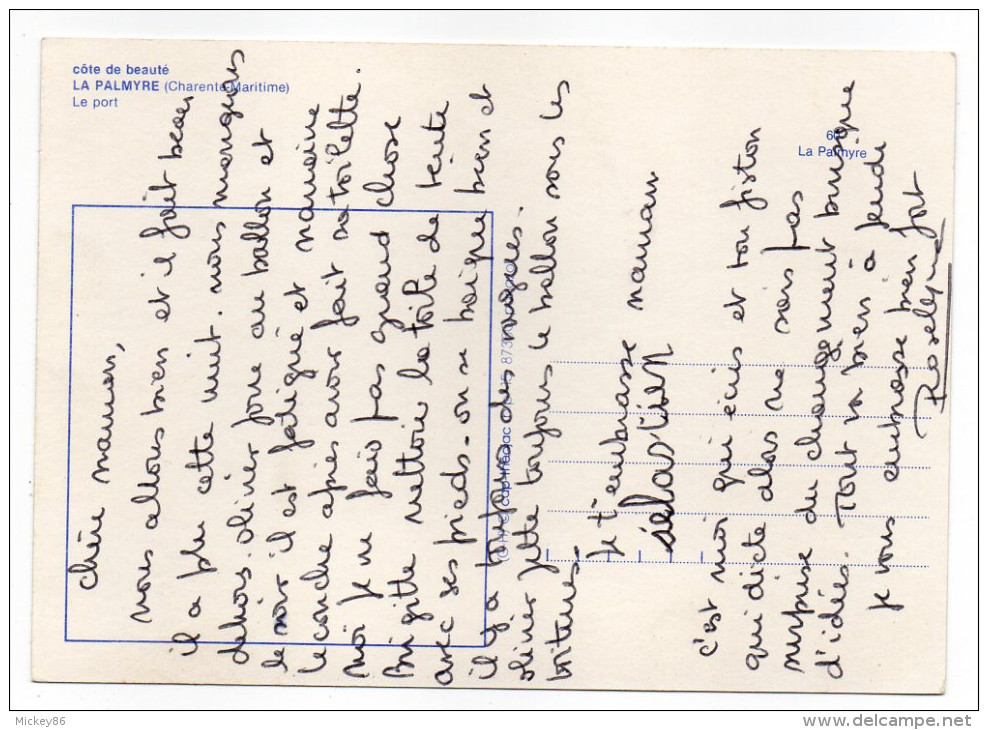 côte de beauté
LA PALMYRE (Charente-Maritime)
Le port
60
La Palmyre
chère maman,
nous allons bien et il fait beau
il a plu cette nuit. nous mangeons
dehors. olivier joue au ballon et
le soir il est fatigué et mamine
le couche après avoir fait sa toilette.
moi je ne fais pas grand chose
Brigitte nettoie la toile de tente
avec ses pieds. on se baigne bien et
il y a toujours des vagues.
olivier jette toujours le ballon sous les
voitures.
je t'embrasse maman
sébastien
c'est moi qui écris et ton fiston
qui dicte alors ne sois pas
surprise du changement brusque
d'idées. Tout va bien à jeudi
je vous embrasse bien fort
Roselyne
Mickey86
www.delcampe.net